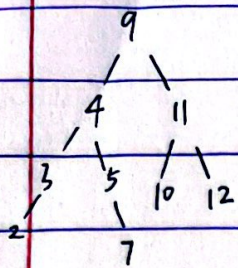 9
4 11
3 5 10 12
2 7